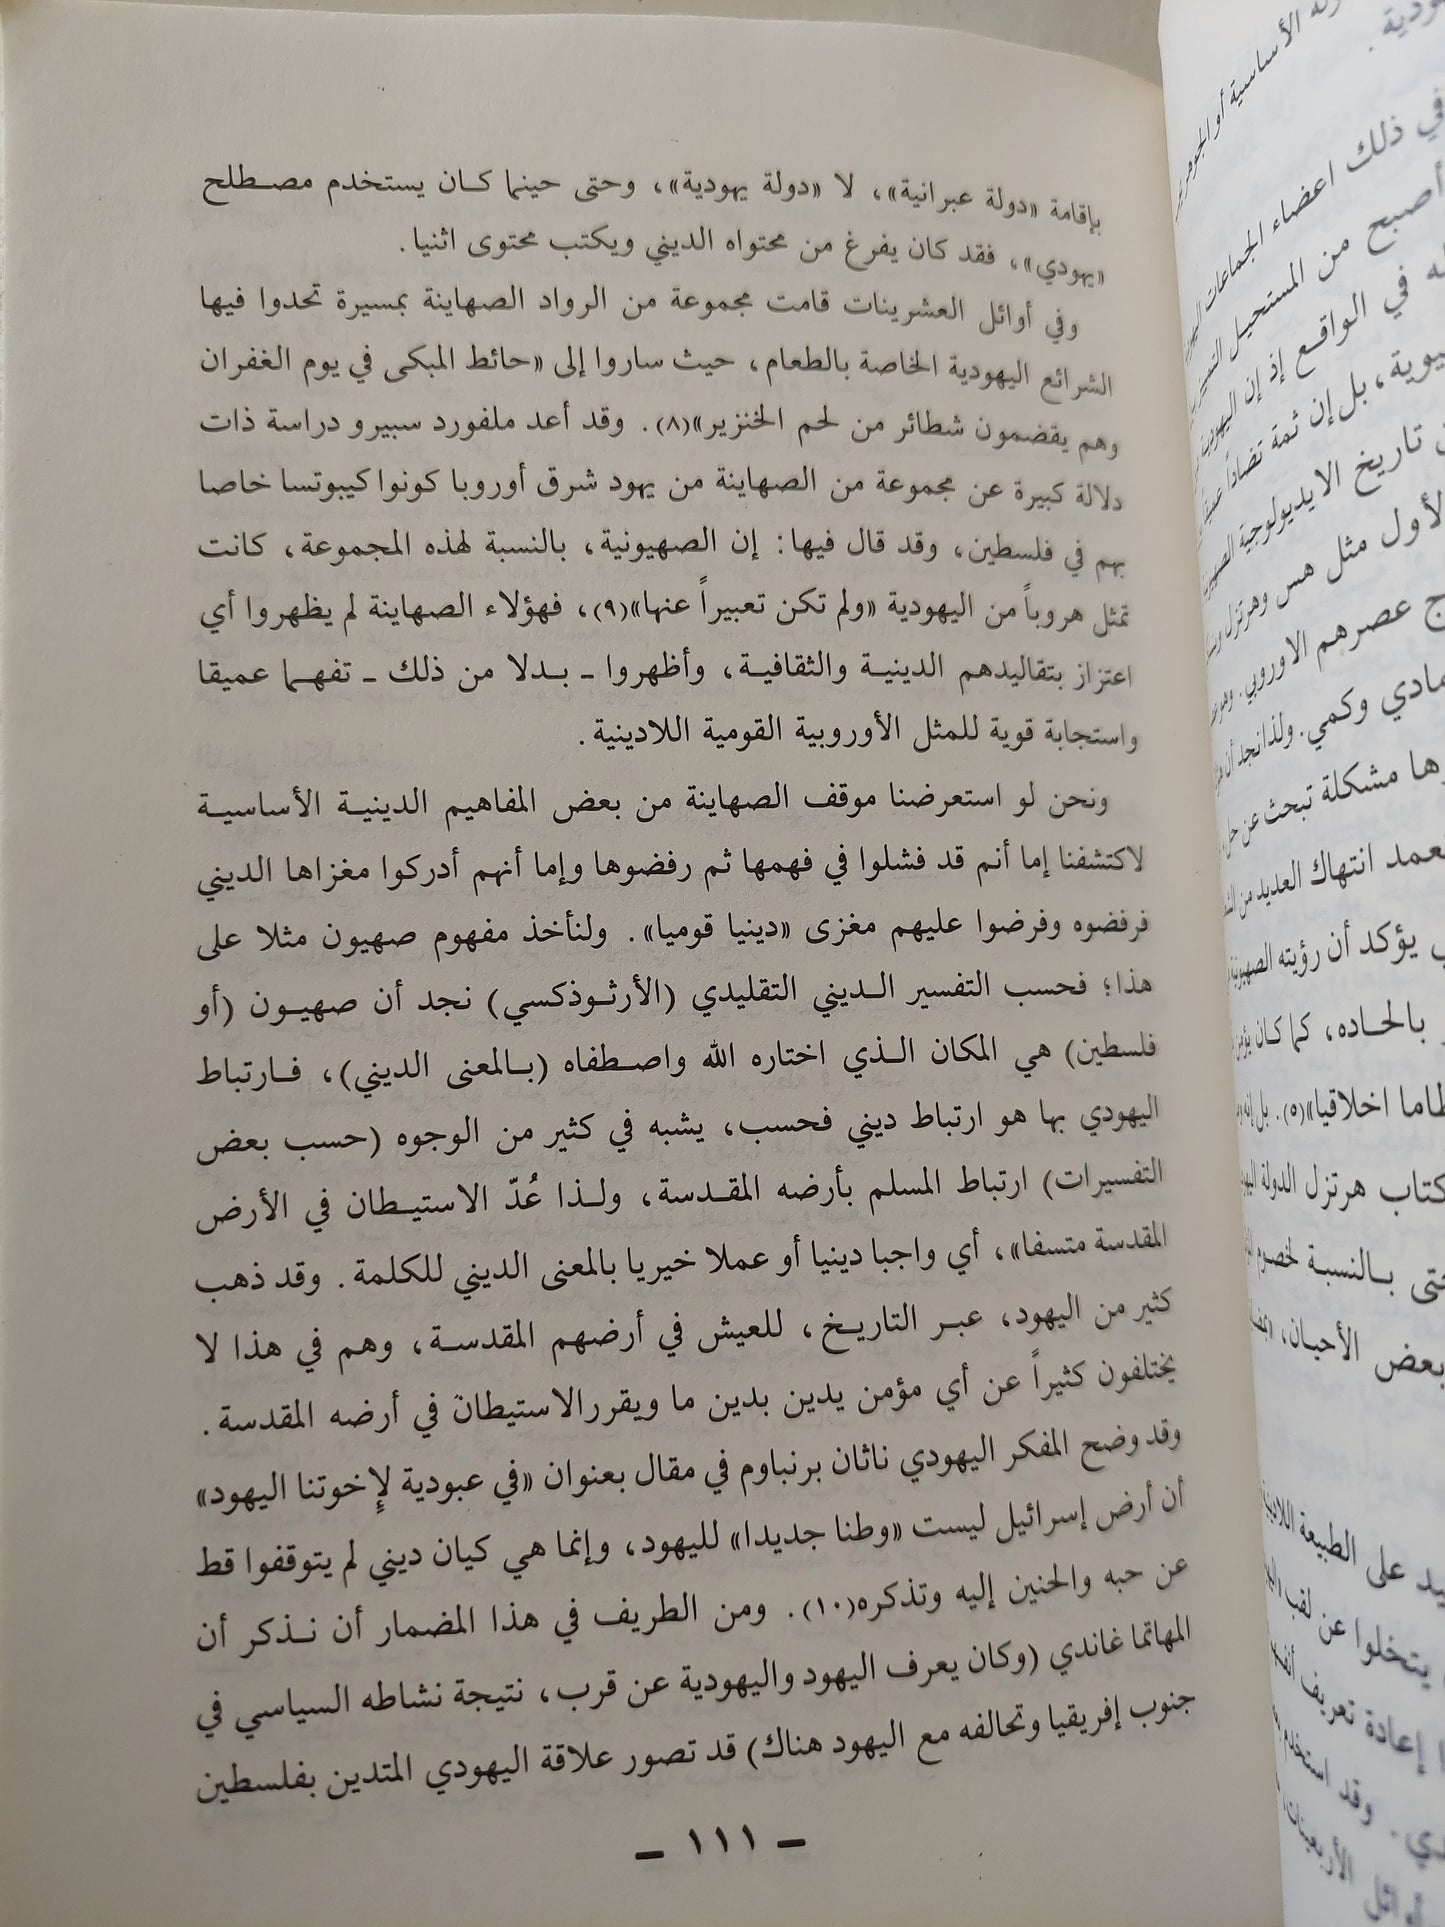 بإقامة «دولة عبرانية»، لا «دولة يهودية»، وحتى حينما كان يستخدم مصطلح
«يهودي»، فقد كان يفرغ من محتواه الديني ويكتب محتوى اثنيا.
وفي أوائل العشرينات قامت مجموعة من الرواد الصهاينة بمسيرة تحدوا فيها
الشرائع اليهودية الخاصة بالطعام، حيث ساروا إلى «حائط المبكى في يوم الغفران
وهم يقضمون شطائر من لحم الخنزير»(٨). وقد أعد ملفورد سبيرو دراسة ذات
دلالة كبيرة عن مجموعة من الصهاينة من يهود شرق أوروبا كونوا كيبوتسا خاصا
بهم في فلسطين، وقد قال فيها: إن الصهيونية، بالنسبة لهذه المجموعة، كانت
تمثل هروباً من اليهودية «ولم تكن تعبيراً عنها»(٩)، فهؤلاء الصهاينة لم يظهروا أي
اعتزاز بتقاليدهم الدينية والثقافية، وأظهروا ـ بدلا من ذلك ـ تفهما عميقا
واستجابة قوية للمثل الأوروبية القومية اللادينية.
ونحن لو استعرضنا موقف الصهاينة من بعض المفاهيم الدينية الأساسية
لاكتشفنا إما أنم قد فشلوا في فهمها ثم رفضوها وإما أنهم أدركوا مغزاها الديني
فرفضوه وفرضوا عليهم مغزى «دينيا قوميا». ولنأخذ مفهوم صهيون مثلا على
هذا؛ فحسب التفسير الديني التقليدي (الأرثوذكسي) نجد أن صهيون (أو
فلسطين) هي المكان الذي اختاره الله واصطفاه (بالمعنى الديني)، فارتباط
اليهودي بها هو ارتباط ديني فحسب، يشبه في كثير من الوجوه (حسب بعض
التفسيرات) ارتباط المسلم بأرضه المقدسة، ولذا عُدّ الاستيطان في الأرض
المقدسة متسفا»، أي واجبا دينيا أو عملا خيريا بالمعنى الديني للكلمة. وقد ذهب
كثير من اليهود، عبر التاريخ، للعيش في أرضهم المقدسة، وهم في هذا لا
يختلفون كثيراً عن أي مؤمن يدين بدين ما ويقرر الاستيطان في أرضه المقدسة.
وقد وضح المفكر اليهودي ناثان برنباوم في مقال بعنوان «في عبودية لإخوتنا اليهود»
أن أرض إسرائيل ليست «وطنا جديدا» لليهود، وإنما هي كيان ديني لم يتوقفوا قط
عن حبه والحنين إليه وتذكره(١٠). ومن الطريف في هذا المضمار أن نذكر أن
المهاتما غاندي (وكان يعرف اليهود واليهودية عن قرب، نتيجة نشاطه السياسي في
جنوب إفريقيا وتحالفه مع اليهود هناك) قد تصور علاقة اليهودي المتدين بفلسطين
ـ ١١١ ـ
الأساسية أو
في ذلك اعضاء الجماعات
أصبح من المستحيل
في الواقع إذ إن
بل إن ثمة تضاداً
تاريخ الايديولوجية
الأول مثل هس وهرتزل
عصرهم الاوروبي.
وكمي. ولذا نجد أن
مشكلة تبحث عن حل
انتهاك العديد من
يؤكد أن رؤيته
بالحاده، كما كان
اخلاقيا»(٥). بل
كتاب هرتزل الدولة
بالنسبة لخصوم
بعض الأحيان،
على الطبيعة
يتخلوا عن لقب
إعادة تعريف
وقد